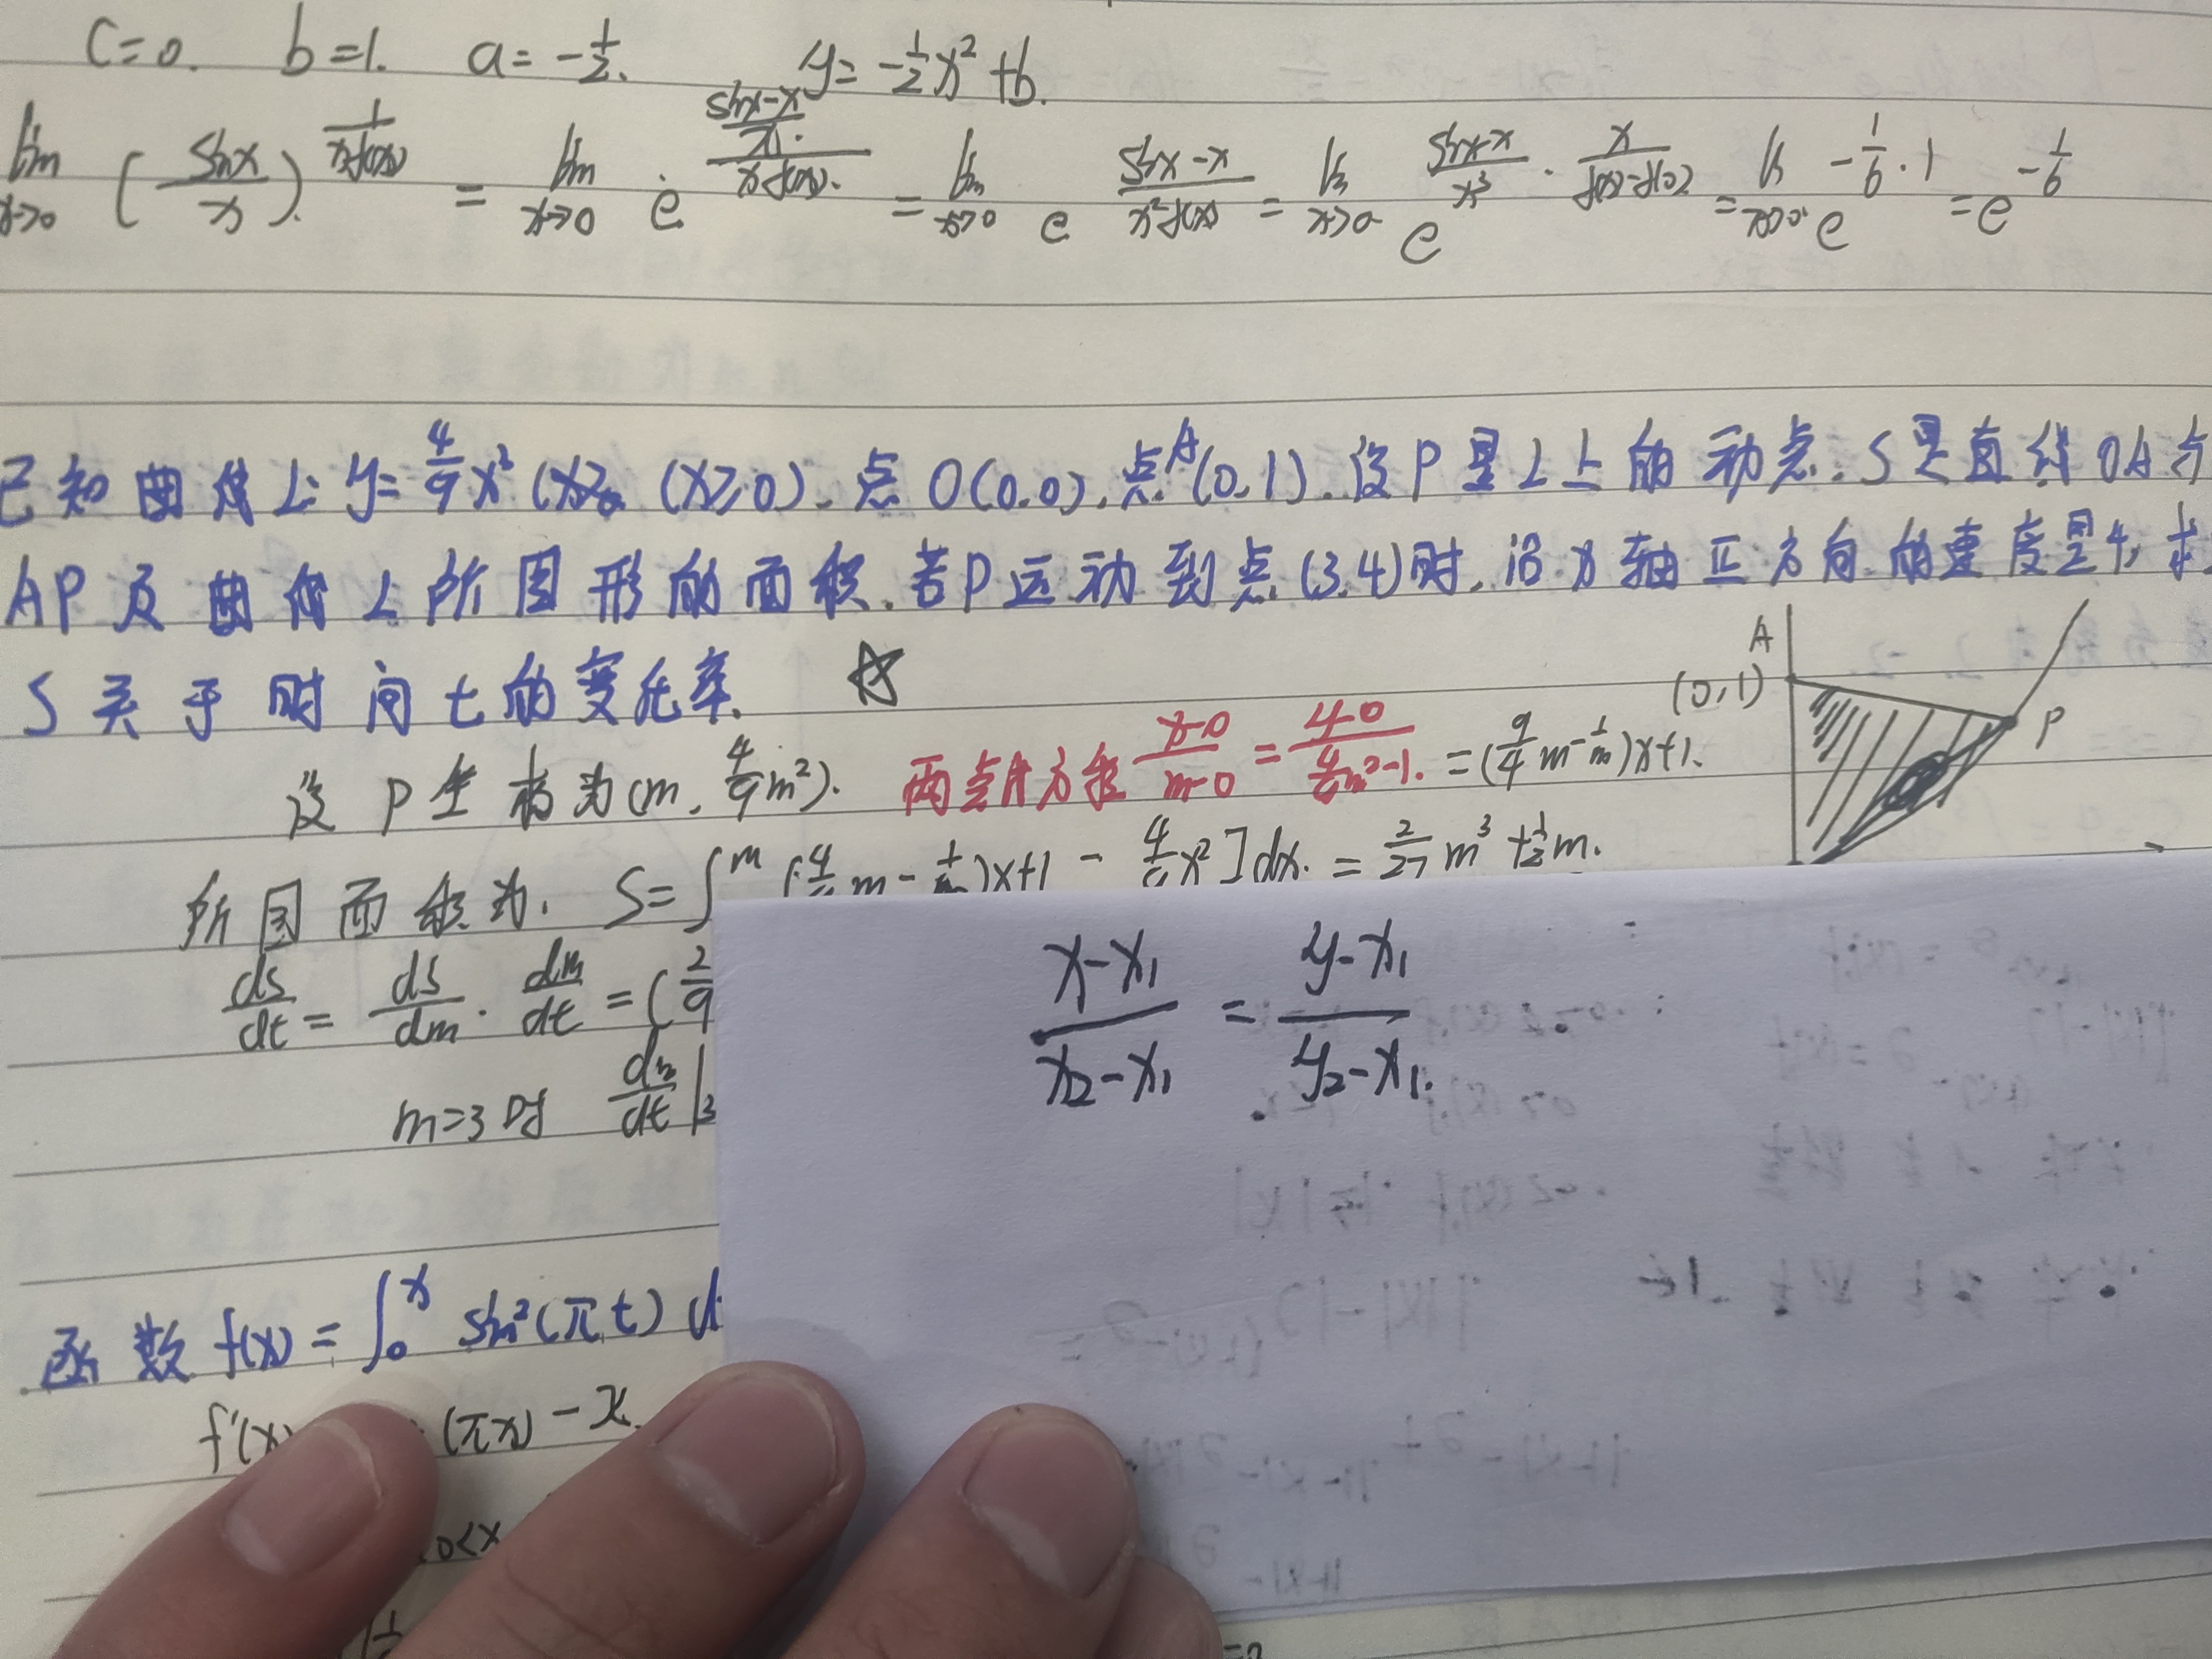 C=0. b=1. a=-1/2. y=-1/2x²+b.
lim x→0 (sinx/x)^(1/(x·f(x))) = lim x→0 e^(((sinx-x)/x)/(x·f(x))) = lim x→0 e^((sinx-x)/(x²f(x))) = lim x→0 e^((sinx-x)/x³ · x/(f(x)-f(0))) = lim x→0 e^(-1/6·1) = e^(-1/6)
已知曲线L: y=4/9x² (x≥0 (x≥0). 点O(0.0), 点A(0,1). 设P是L上的动点. S是直线OA与
AP及曲线L所围形的面积. 若P运动到点(3.4)时, 沿x轴正方向的速度是4, 求
S关于时间t的变化率. ☆
A
(0,1)
P
设P坐标为(m, 4/9m²). 两点式方程 (x-0)/(m-0) = (y-0)/(4/9m²-1). =(9/4m-1/m)x+1.
所围面积为. S=∫^m (4/9m-1/m)x+1 - 4/9x²]dx. = 2/27m³+1/2m.
ds/dt = ds/dm · dm/dt = (2/9
m=3时 dm/dt|3
(x-x₁)/(x₂-x₁) = (y-x₁)/(y₂-x₁).
函数f(x)=∫₀ˣ sin²(πt) d
f'(x) (πx)-x
0<x